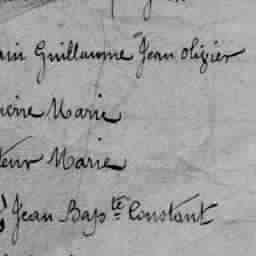 Guillaume Jean olivier
Marie
teur Marie
Jean Bapte Constant